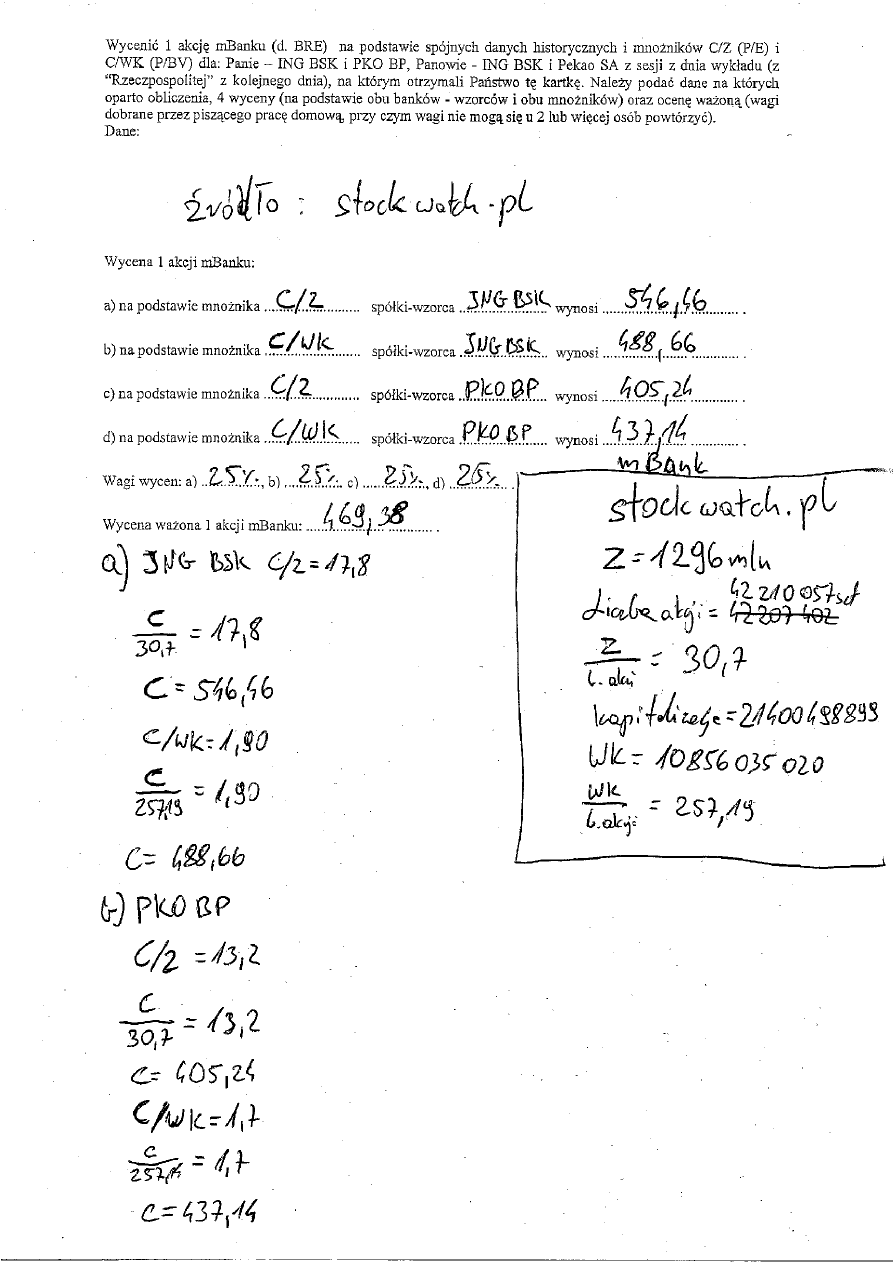 Wycenić 1 akcję mBanku (d. BRE) na podstawie spójnych danych historycznych i mnożników C/Z (P/E) i
C/WK (P/BV) dla: Panie – ING BSK i PKO BP, Panowie - ING BSK i Pekao SA z sesji z dnia wykładu (z
“Rzeczpospolitej” z kolejnego dnia), na którym otrzymali Państwo tę kartkę. Należy podać dane na których
oparto obliczenia, 4 wyceny (na podstawie obu banków - wzorców i obu mnożników) oraz ocenę ważoną (wagi
dobrane przez piszącego pracę domową, przy czym wagi nie mogą się u 2 lub więcej osób powtórzyć).
Dane:
źródło : stockwatch.pl
Wycena 1 akcji mBanku:
a) na podstawie mnożnika C/Z spółki-wzorca ING BSK wynosi 546,46
b) na podstawie mnożnika C/WK spółki-wzorca ING BSK wynosi 488,66
c) na podstawie mnożnika C/Z spółki-wzorca PKO BP wynosi 405,24
d) na podstawie mnożnika C/WK spółki-wzorca PKO BP wynosi 437,14
Wagi wycen: a) 25%, b) 25%, c) 25%, d) 25%
Wycena ważona 1 akcji mBanku: 469,38
a) ING BSK C/Z = 17,8
C/30,7 = 17,8
C = 546,46
C/WK = 1,90
C/257,19 = 1,90
C = 488,66
b) PKO BP
C/Z = 13,2
C/30,7 = 13,2
C = 405,24
C/WK = 1,7
C/257,14 = 1,7
C = 437,14
mBank
stockwatch.pl
Z = 1296 mln
42 210 057 szt
Liczba akcji = 42 207 402
Z/l. akcji = 30,7
kapitalizacja = 21400498899
WK = 10856 035 020
WK/l. akcji = 257,19